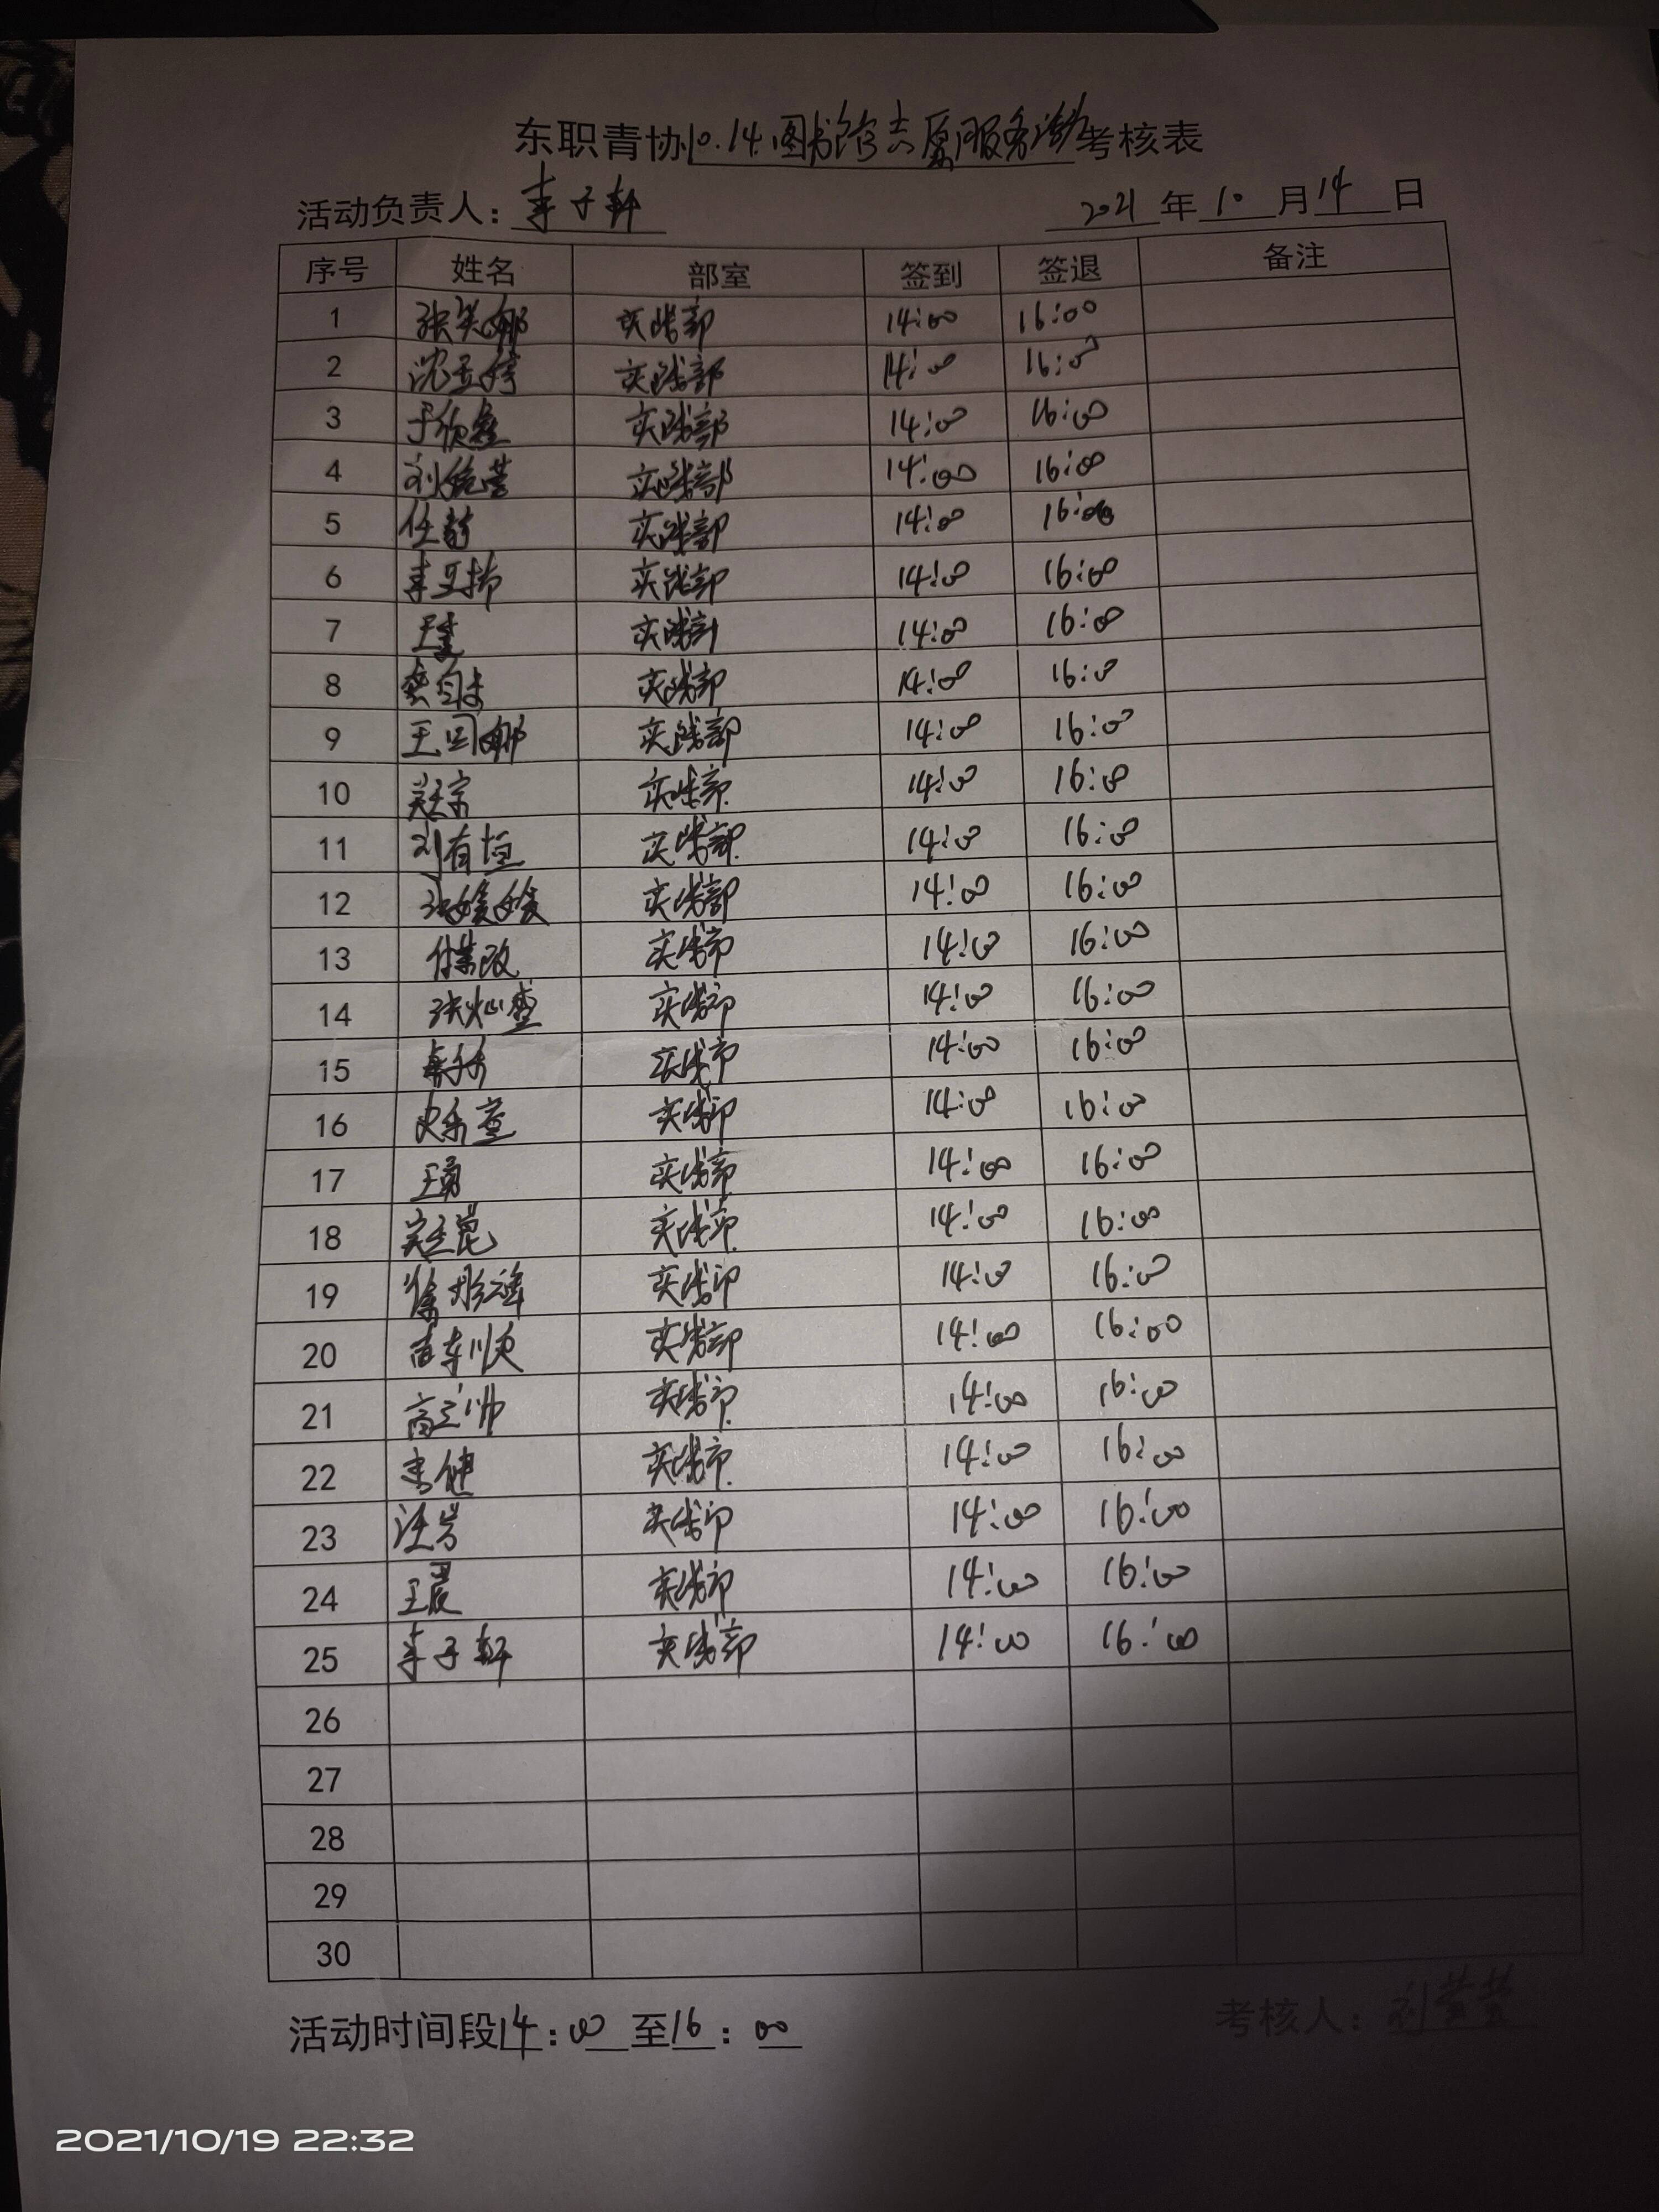 东职青协10.14.图书馆志愿服务活动考核表
活动负责人：李子轩 2021年10月14日
序号 姓名 部室 签到 签退 备注
1 实践部 14:00 16:00
2 沈孟婷 实践部 14:00 16:00
3 于欣鑫 实践部 14:00 16:00
4 实践部 14:00 16:00
5 任静 实践部 14:00 16:00
6 实践部 14:00 16:00
7 实践部 14:00 16:00
8 实践部 14:00 16:00
9 实践部 14:00 16:00
10 实践部 14:00 16:00
11 刘有恒 实践部 14:00 16:00
12 张媛媛 实践部 14:00 16:00
13 实践部 14:00 16:00
14 实践部 14:00 16:00
15 实践部 14:00 16:00
16 史乐童 实践部 14:00 16:00
17 王勇 实践部 14:00 16:00
18 实践部 14:00 16:00
19 实践部 14:00 16:00
20 实践部 14:00 16:00
21 高立帅 实践部 14:00 16:00
22 李健 实践部 14:00 16:00
23 汪岩 实践部 14:00 16:00
24 王晨 实践部 14:00 16:00
25 李子轩 实践部 14:00 16:00
26
27
28
29
30
活动时间段14:00至16:00 考核人：刘莹莹
2021/10/19 22:32